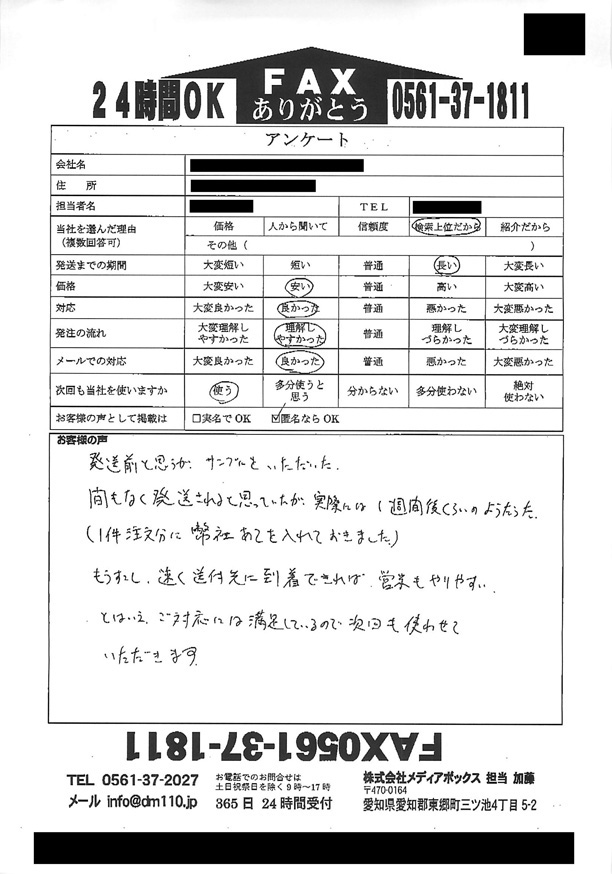 24時間OK
FAX
ありがとう
0561-37-1811
アンケート
会社名
住　所
担当者名 TEL
当社を選んだ理由 （複数回答可） 価格 人から聞いて 信頼度 検索上位だから 紹介だから
その他（　　　）
発送までの期間 大変短い 短い 普通 長い 大変長い
価格 大変安い 安い 普通 高い 大変高い
対応 大変良かった 良かった 普通 悪かった 大変悪かった
発注の流れ 大変理解しやすかった 理解しやすかった 普通 理解しづらかった 大変理解しづらかった
メールでの対応 大変良かった 良かった 普通 悪かった 大変悪かった
次回も当社を使いますか 使う 多分使うと思う 分からない 多分使わない 絶対使わない
お客様の声として掲載は □実名でOK ☑匿名ならOK
お客様の声
発送前と思うが、サンプルをいただいた。
間もなく発送されると思っていたが、実際には1週間後くらいのようだった。
(1件注文分に弊社あてを入れておきました)
もう少し、速く送付先に到着できれば、営業もやりやすい。
とはいえ、ご対応には満足しているので次回も使わせて
いただきます。
FAX0561-37-1811
TEL 0561-37-2027
メール info@dm110.jp
お電話でのお問合せは
土日祝祭日を除く9時～17時
365日24時間受付
株式会社メディアボックス 担当 加藤
〒470-0164
愛知県愛知郡東郷町三ツ池4丁目5-2